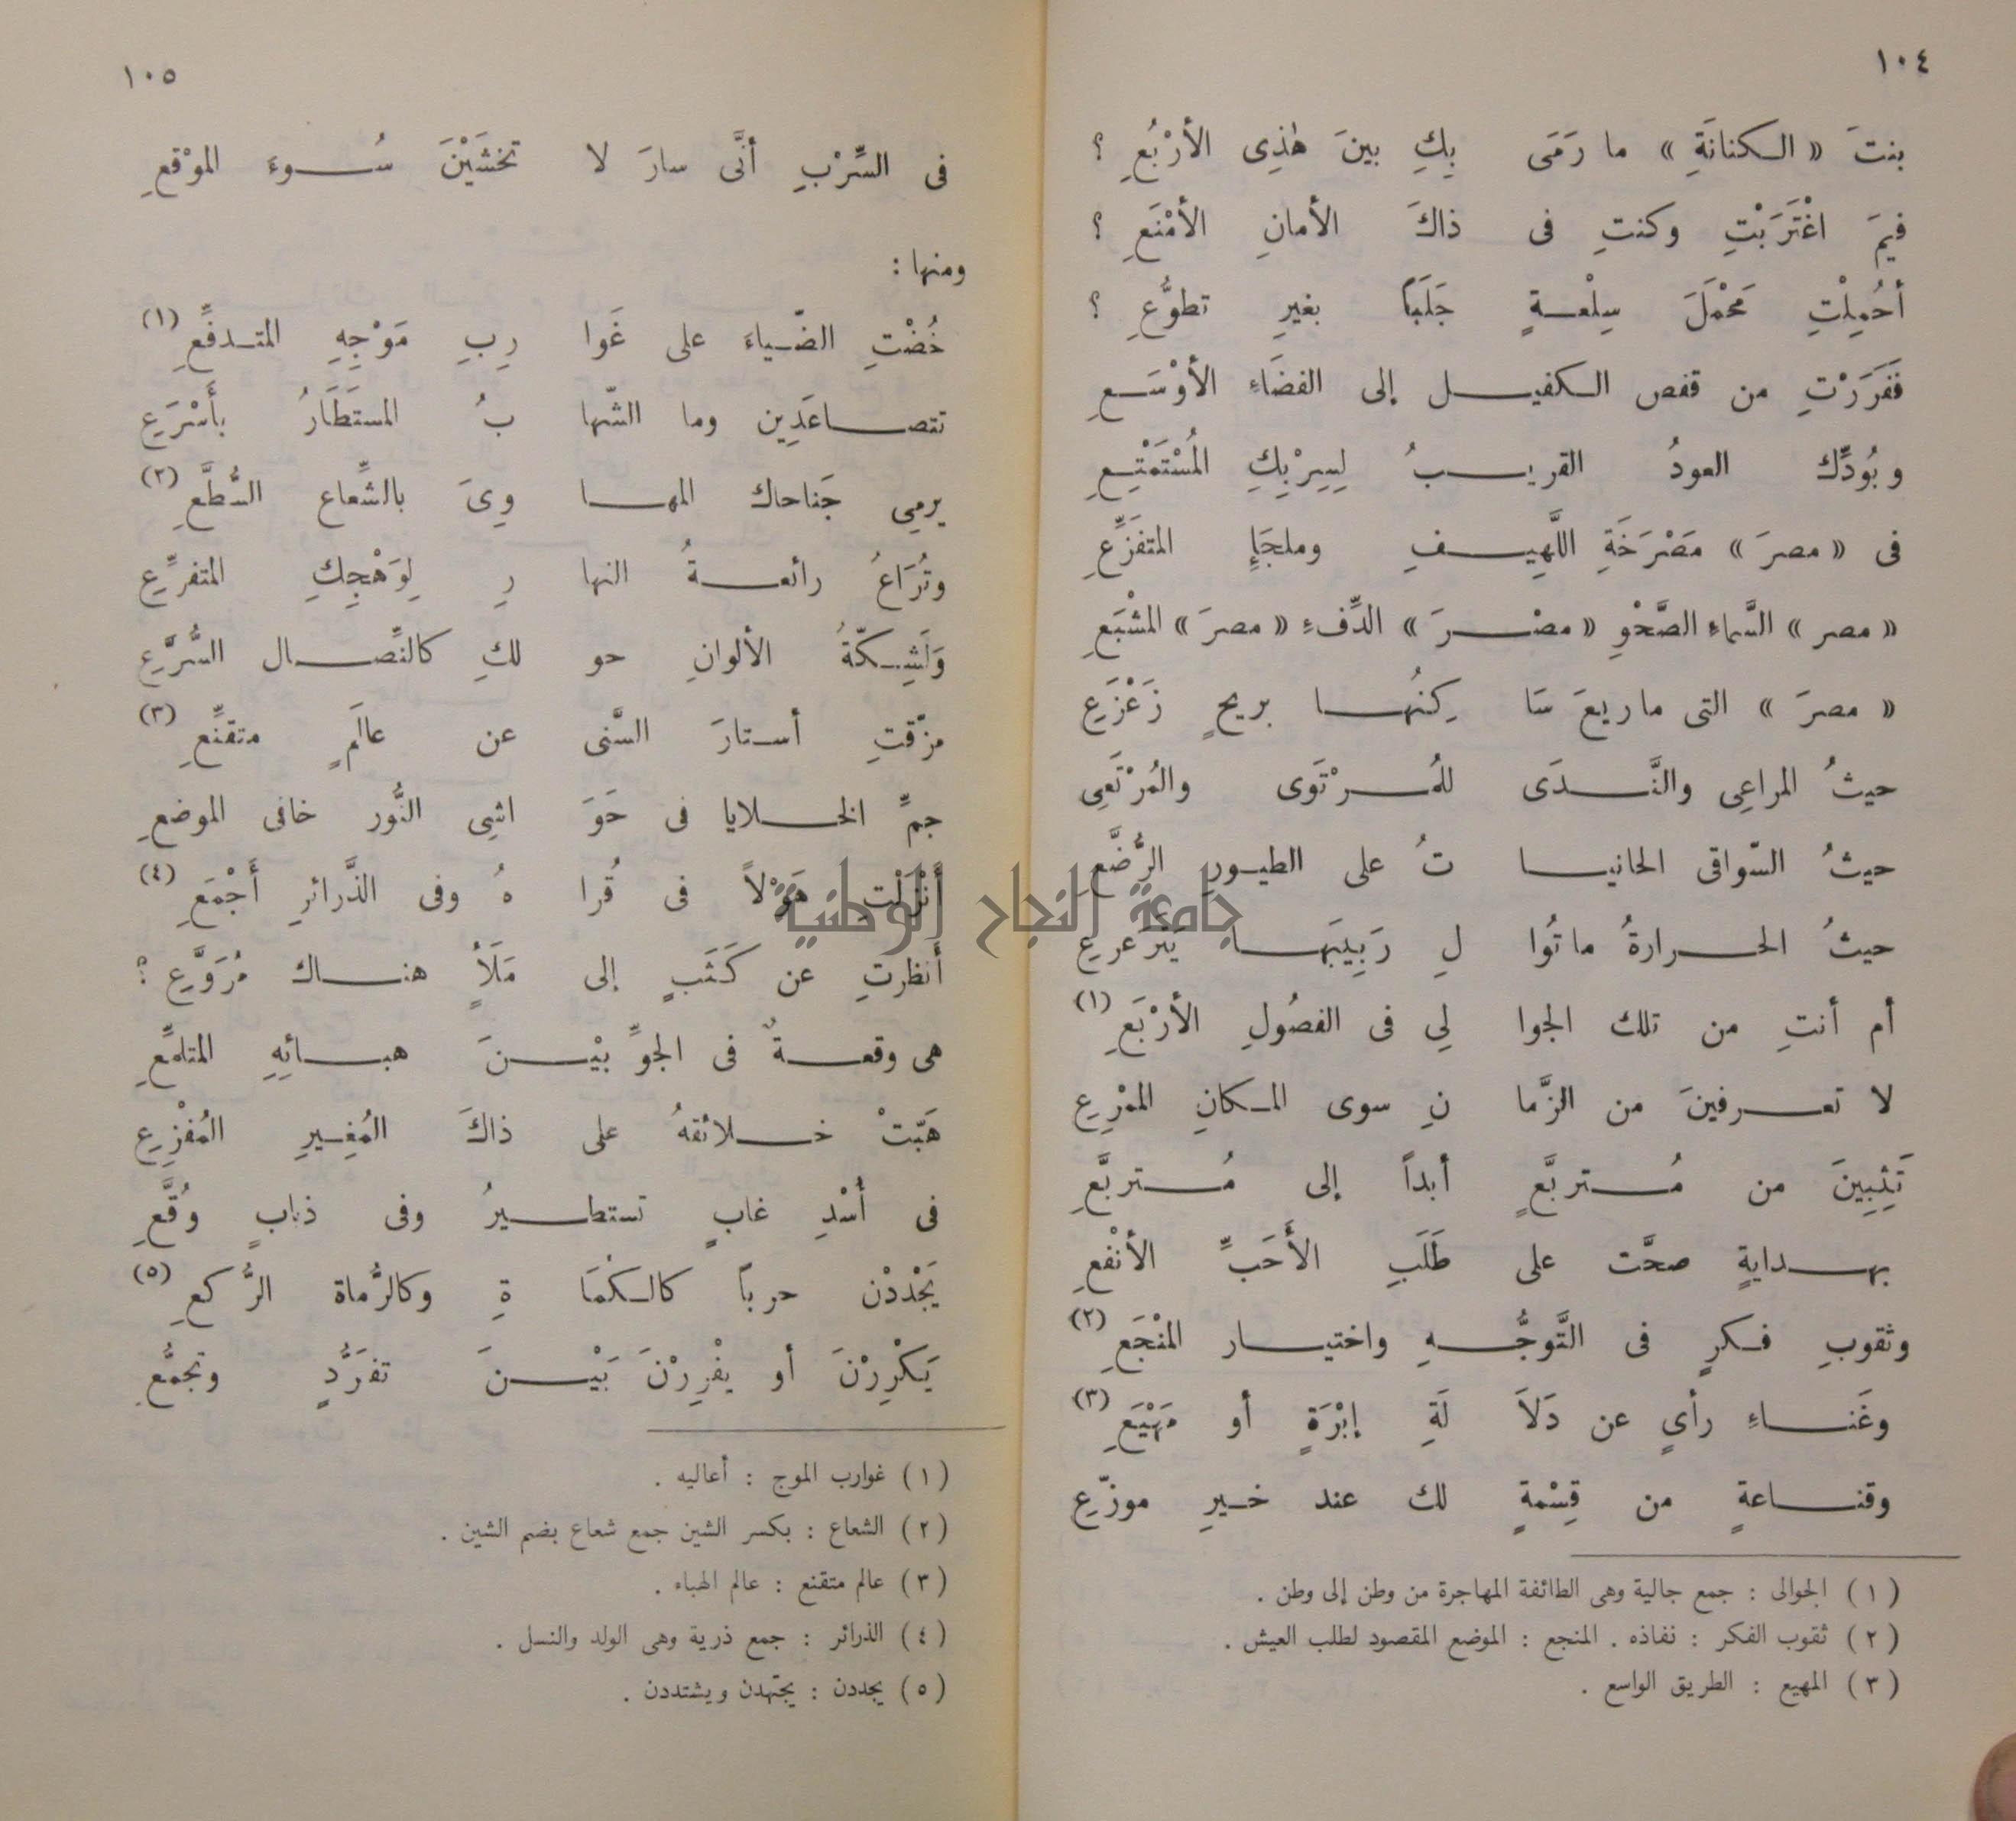 ١٠٤
بنتَ « الكنانَةِ » ما رَمَى بِكِ بينَ هٰذِى الأرْبُعِ ؟
فيمَ اغْتَرَبْتِ وكنتِ فى ذاكَ الأمانِ الأمْنَعِ ؟
أحُمِلْتِ مَحْمَلَ سِلْعةٍ جَلَبًا بغيرِ تطوُّعِ ؟
فَفَرَرْتِ من قفص الكفيل إلى الفضَاءِ الأوْسَعِ
وبُودِّك العودُ القريبُ لِسِرْبِكِ المُسْتَمْتِعِ
فى « مصرَ » مَصْرَخَةِ اللَّهِيفِ وملجَإِ المتفزِّعِ
« مصر » السَّماءِ الصَّحْوِ « مصْرَ » الدِّفءِ « مصرَ » المشْبَعِ
« مصرَ » التى ماريعَ سَا كِنُها بريحٍ زَعْزَعِ
حيثُ المراعِى والنَّدَى للمُرْتَوى والمُرْتَعِى
حيثُ السّواقى الحانيا تُ على الطيورِ الرُّضَّعِ
حيثُ الحرارةُ ماتُوا لِ رَبِيبَها يَتَرَعرعِ
أم أنتِ من تلك الجوا لِي فى الفصُولِ الأرْبَعِ (١)
لا تعرفينَ من الزَّما نِ سوى المكانِ الممْرِعِ
تَثِبِينَ من مُستربَّعٍ أبداً إلى مُستربَّعِ
بهدايةٍ صحَّت على طَلَبِ الأَحَبِّ الأنْفعِ
وثقوبِ فكرٍ فى التَّوجُّهِ واختيار المنْجَعِ (٢)
وغَناءِ رأىٍ عن دَلاَ لَةِ إبْرَةٍ أو مَهْيَعِ (٣)
وقناعةٍ من قِسْمةٍ لك عند خيرِ موزّعِ
( ١ ) الجوالى : جمع جالية وهى الطائفة المهاجرة من وطن إلى وطن .
( ٢ ) ثقوب الفكر : نفاذه . المنجع : الموضع المقصود لطلب العيش .
( ٣ ) المهيع : الطريق الواسع .
١٠٥
فى السِّرْبِ أنَّى سارَ لا تخشَيْنَ سُوءَ الموْقعِ
ومنها :
خُضْتِ الضّياءَ على غَوا رِبِ مَوْجِهِ المتدفِّعِ (١)
تتصاعَدِين وما الشّها بُ المستَطَارُ بأَسْرَعِ
يرمِي جَناحاك المها وِىَ بالشِّعاع السُّطَّعِ (٢)
وتُرَاعُ رائعةُ النها رِ لِوَهْجِكِ المتفرِّعِ
وَلَشِكّةُ الألوانِ حو لكِ كالنِّصال السُّرَّعِ
مزّقتِ أستارَ السَّنى عن عالَمٍ متقنِّعِ (٣)
جمِّ الخلايا فى حَوَ اشِى النُّور خافى الموضعِ
أَنْزَلْتِ هَوْلاً فى قُرا هُ وفى الذَّرائرِ أَجْمَعِ (٤)
أنظرتِ عن كَثَبٍ إلى مَلَأٍ هناك مُرَوَّعِ ؟
هى وقعةٌ فى الجوِّ بيْنَ هبائِهِ المتلمِّعِ
هَبّتْ خلائقهُ على ذاكَ المُغِيرِ المُفْزِعِ
فى أُسْدِ غابٍ تستطيرُ وفى ذبابٍ وُقَّعِ
يَجْدِدْن حرباً كالكمَا ةِ وكالرُّماة الرُّكعِ (٥)
يَكْرِرْنَ أو يفْرِرْنَ بَيْنَ تفرَّدٍ وتجمُّعِ
( ١ ) غوارب الموج : أعاليه .
( ٢ ) الشعاع : بكسر الشين جمع شعاع بضم الشين .
( ٣ ) عالم متقنع : عالم الهباء .
( ٤ ) الذرائر : جمع ذرية وهى الولد والنسل .
( ٥ ) يجددن : يجتهدن ويشتددن .
جامعة النجاح الوطنية